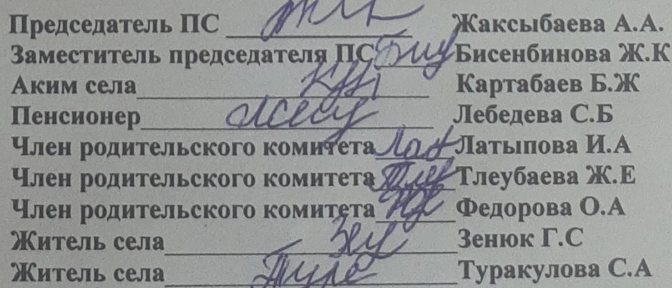 Председатель ПС Жаксыбаева А.А.
Заместитель председателя ПС Бисенбинова Ж.К
Аким села Картабаев Б.Ж
Пенсионер Лебедева С.Б
Член родительского комитета Латыпова И.А
Член родительского комитета Тлеубаева Ж.Е
Член родительского комитета Федорова О.А
Житель села Зенюк Г.С
Житель села Туракулова С.А